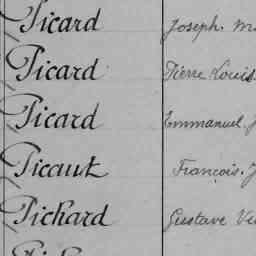 Picard Joseph. M
Picard Pierre Louis.
Picard Emmanuel. J
Picaut François. J
Pichard Gustave Ve